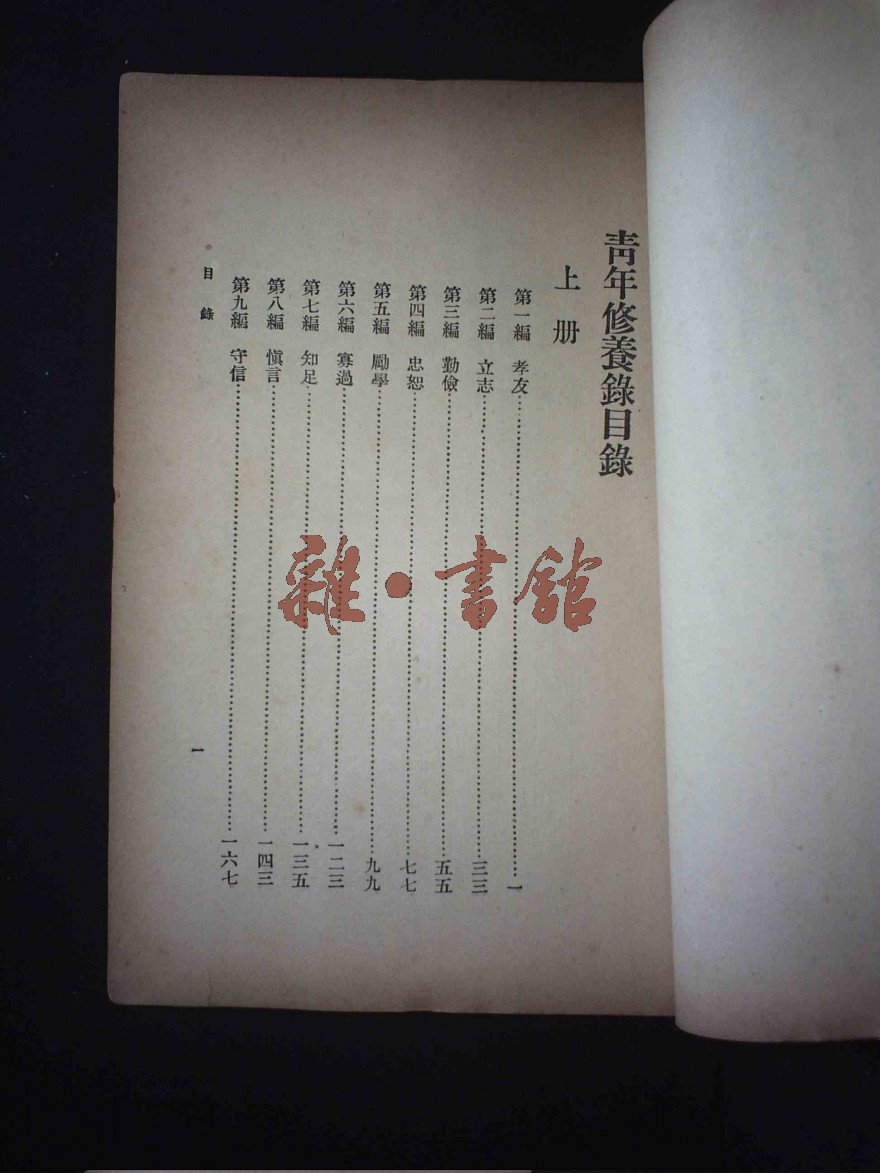 靑年修養錄目錄
上册
第一編 孝友……一
第二編 立志……三三
第三編 勤儉……五五
第四編 忠恕……七七
第五編 勵學……九九
第六編 寡過……一二三
第七編 知足……一三五
第八編 愼言……一四三
第九編 守信……一六七
目錄
一
雜·書館